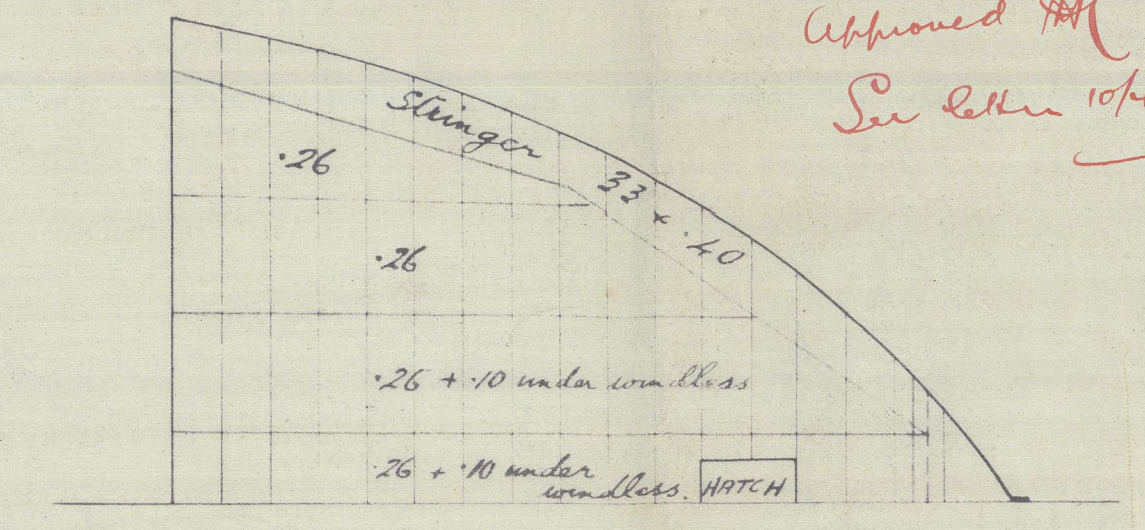 Approved
See letter 10/
Stringer 33 × .40
.26
.26
.26 + .10 under windlass
.26 + .10 under
windlass.
HATCH